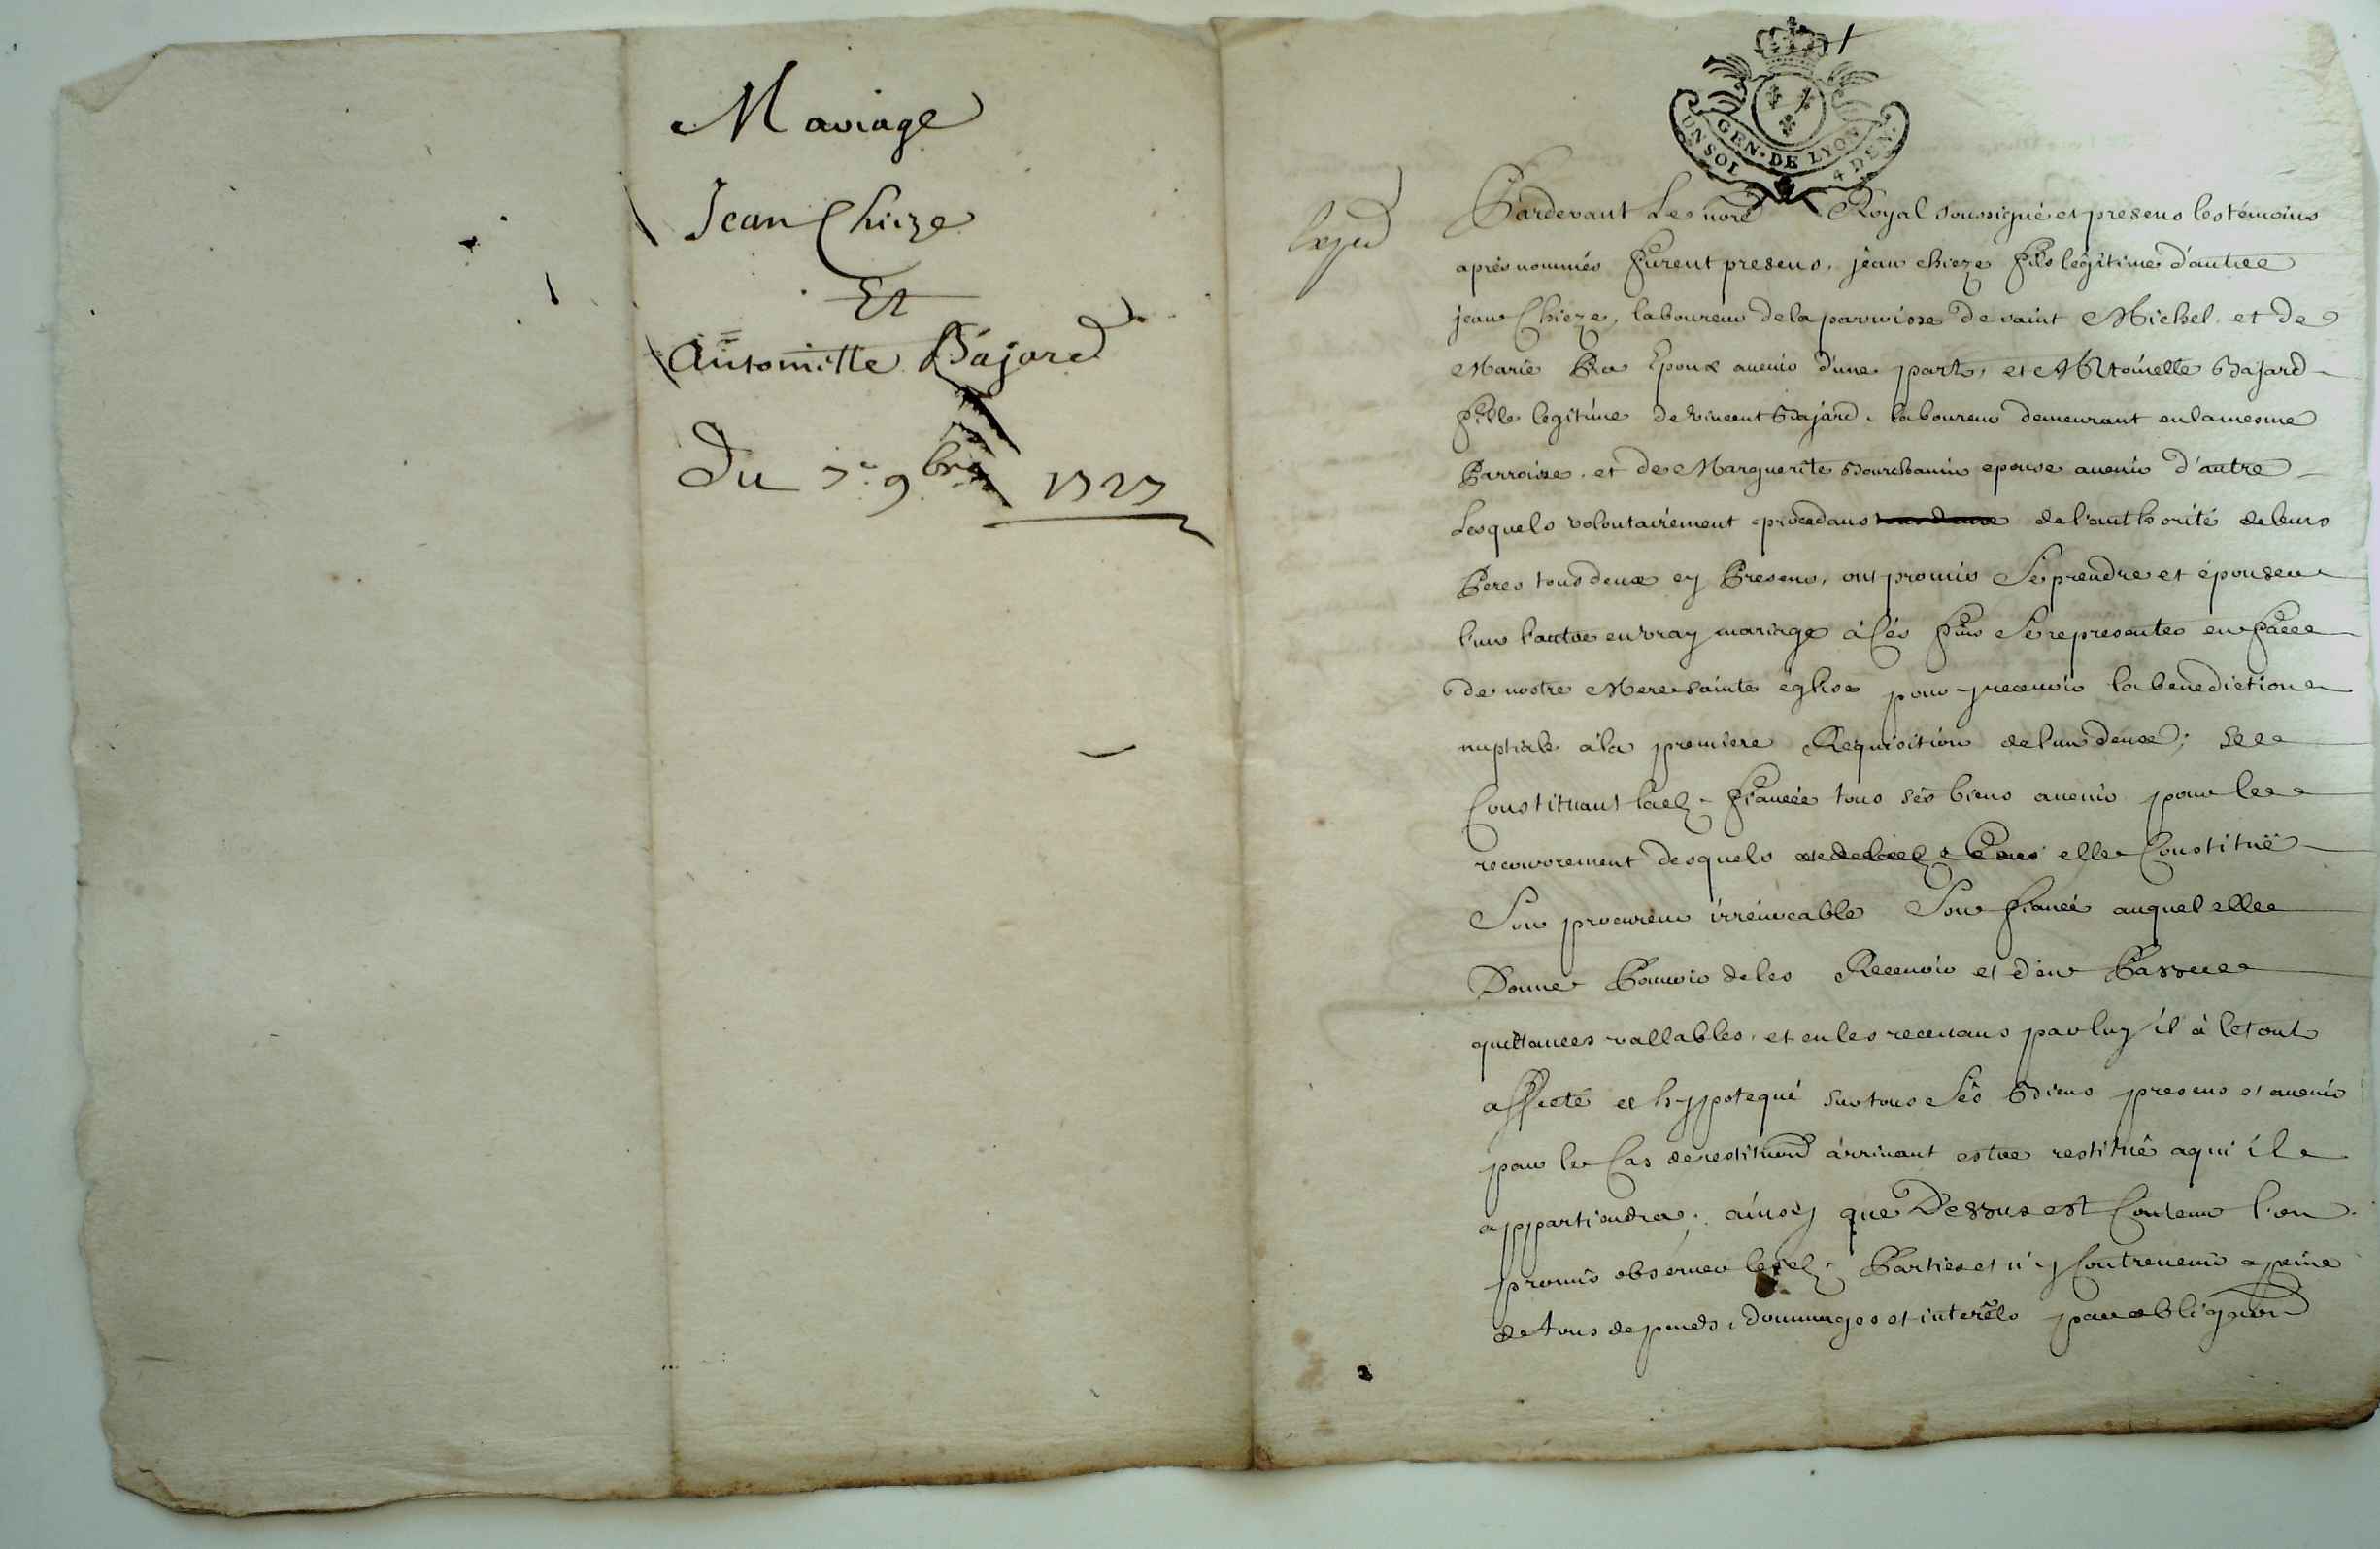 Mariage
Jean Chieze
Et
Antoinette Bajard
Du 7e 9bre 1727
GEN · DE LYON
UN SOL 4 DEN.
Expd
Pardevant Le nore Royal soussigné et presens les témoins
aprés nommés Furent presens, jean chieze Fils legitime d'autre
jean Chieze, laboureur de la parroisse de saint Michel et de
Marie Epoux avenir d'une part, et Antoinette Bajard
Fille legitime de Vincent Bajard, laboureur demeurant en la mesme
Parroisse, et de Marguerite Bourchanin epouse avenir d'autre
Lesquels volontairement procedans de l'authorité de leurs
Peres tous deux cy Presens, ont promis Se prendre et épouser
l'un l'autre en vray mariage à Cés Fins Se representer en Face
de nostre Mere sainte église pour y recevoir la benediction
nuptiale à la premiere Requisition de l'un d'eux; Se
Constituant lad. Fiancée tous sés biens avenir pour le
recouvrement desquels elle Constituë
Son procureur irrévocable Son Fiancé auquel elle
Donne Pouvoir de les Recevoir et d'en Passer
quittances vallables, et en les recevans par luy il à le tout
affecté et hypotequé sur tous Sés Biens presens et avenir
pour le Cas de restituon àrrivant estre restitué a qui il
appartiendra; ainsy que Dessus est Contenu l'on
promis observer lesd. Parties et n'y Contrevenir a peine
de tous depends, dommages et interêts par obligaon